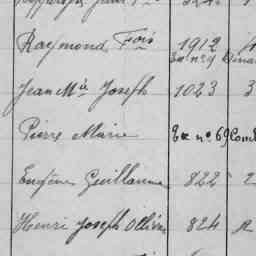 Raymond Fois 1912
Ex nº 9 Dinan
Jean Mie Joseph 1023 3
Pierre Marie Ex nº 69 Comb
Eugène Guillaume 822 2
Henri Joseph Ollivier 824 2